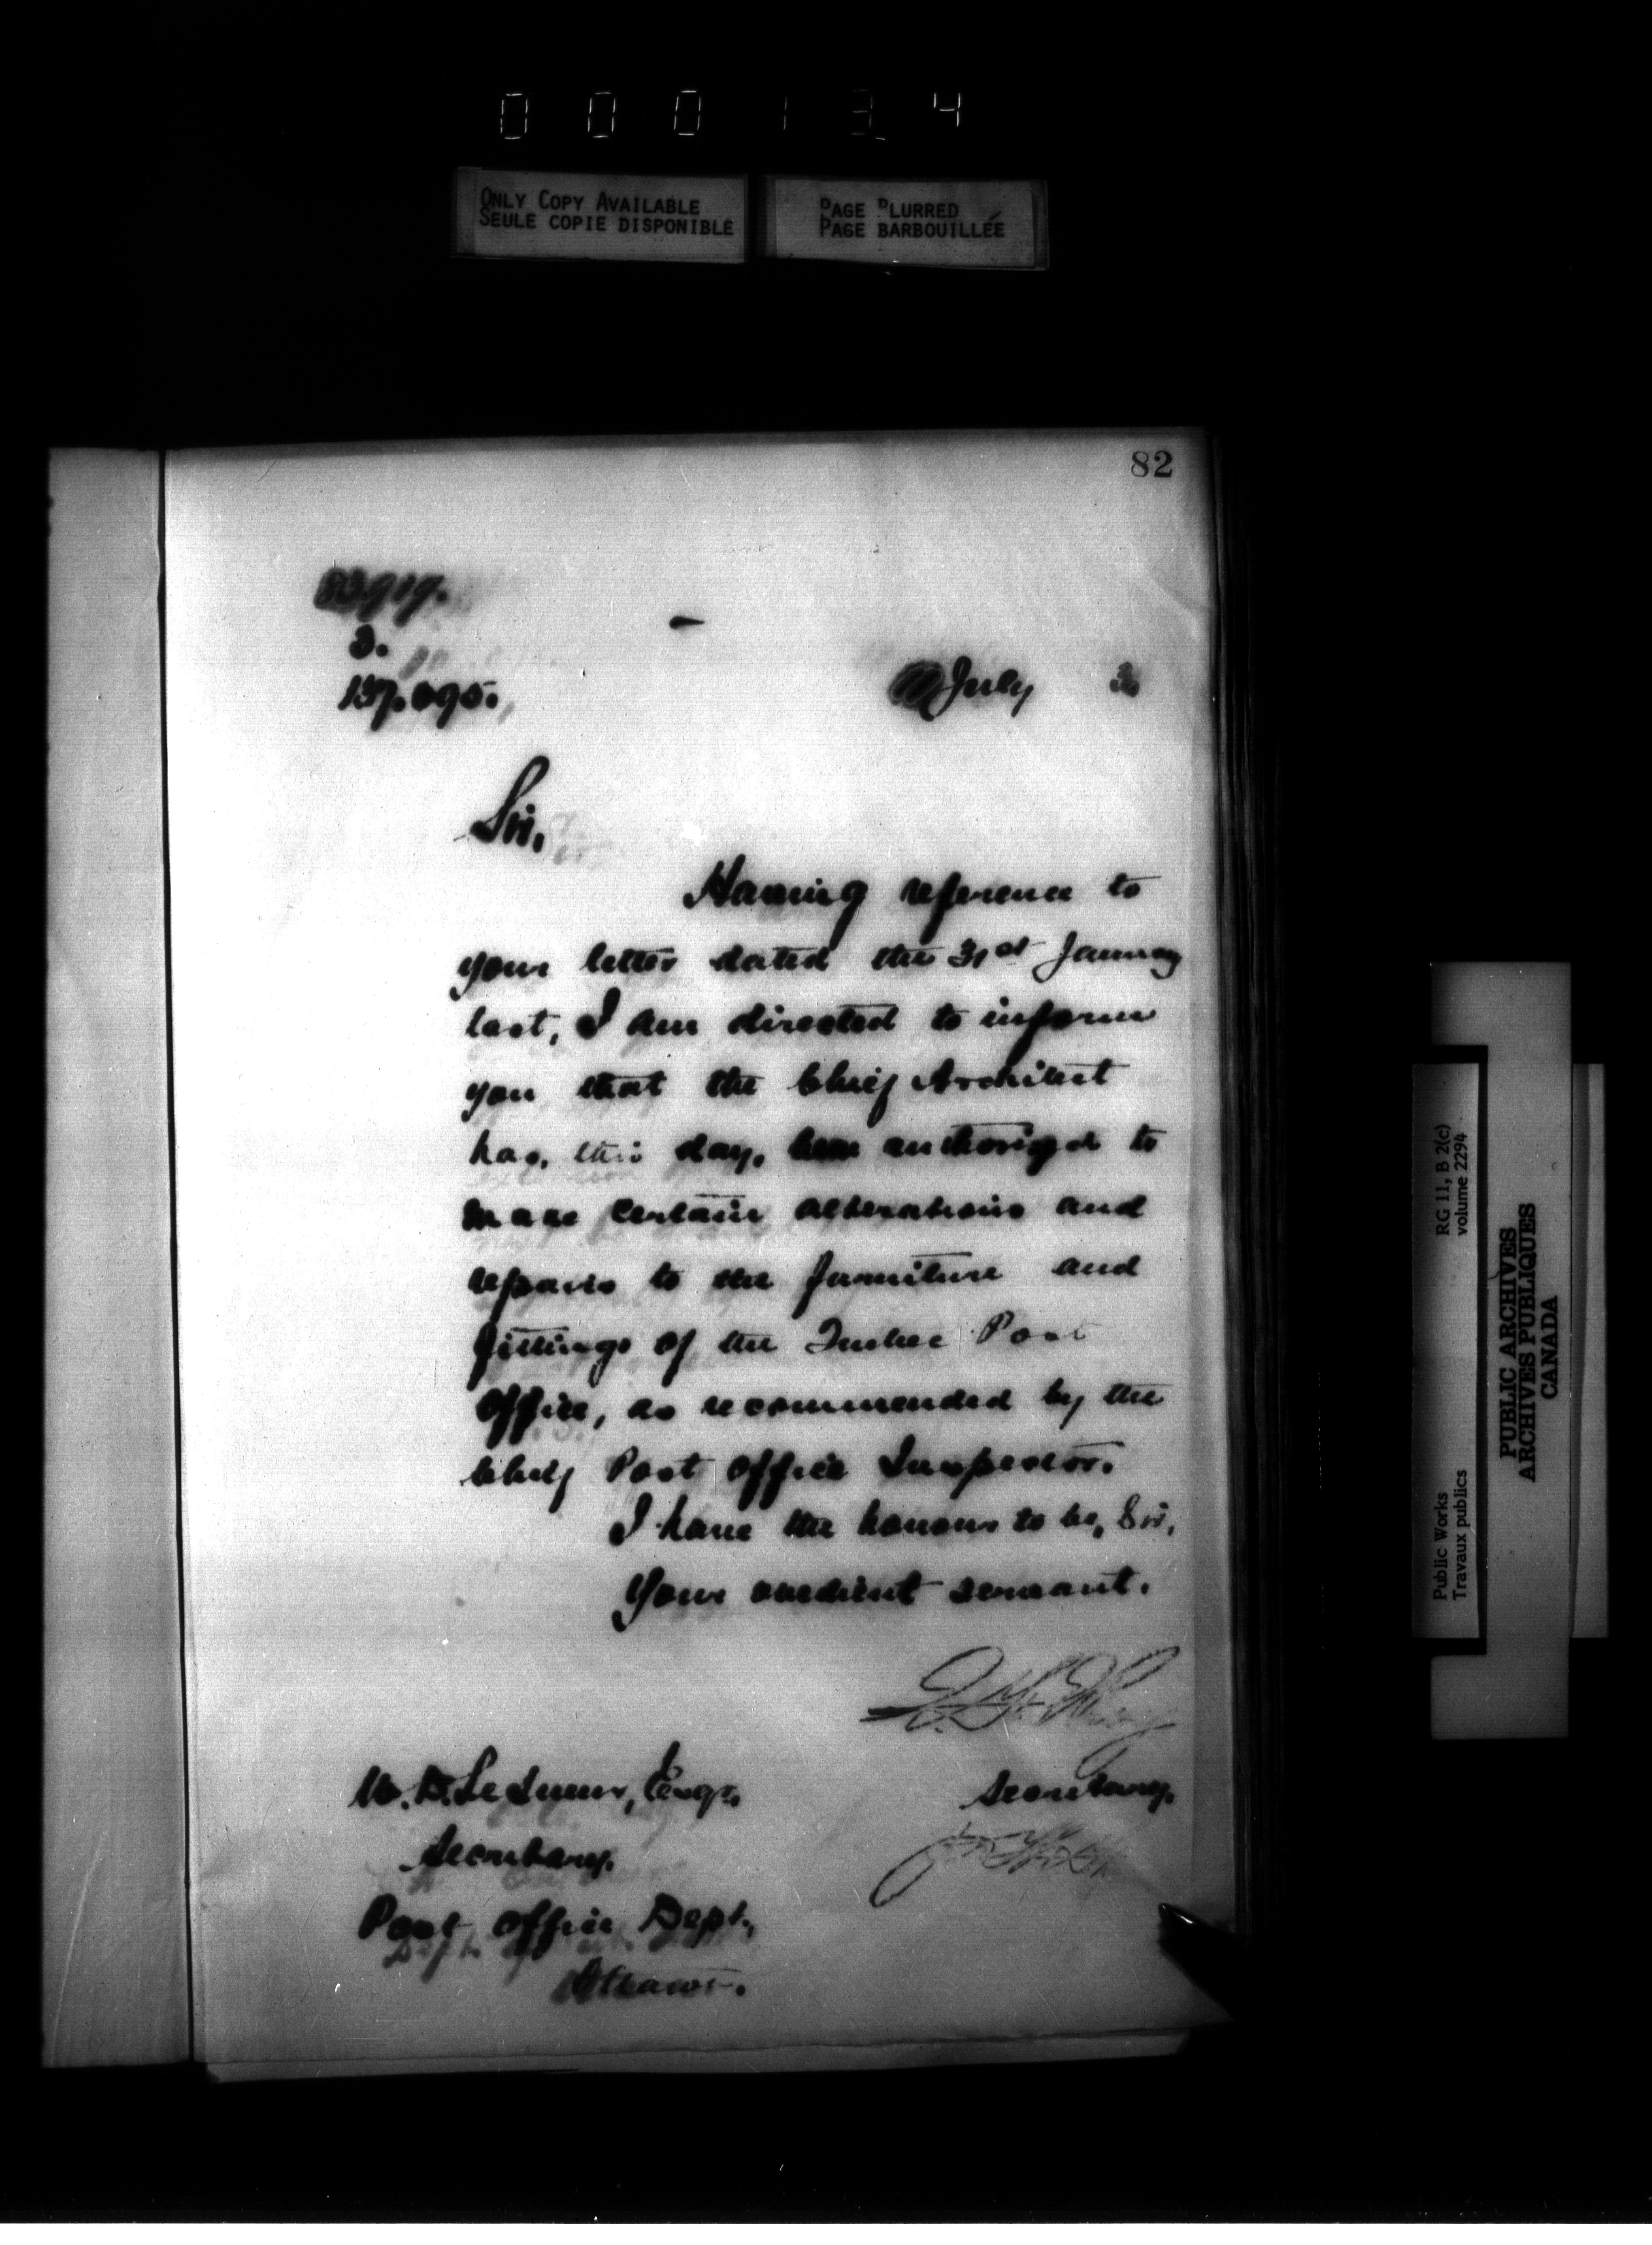 0 0 0 1 3 4
ONLY COPY AVAILABLE
SEULE COPIE DISPONIBLE
PAGE BLURRED
PAGE BARBOUILLÉE
82
83919.
3.
137.095.
July 3
Sir,
Having reference to
your letter dated the 31st January
last, I am directed to inform
you that the Chief Architect
has, this day, been authorized to
make certain alterations and
repairs to the furniture and
fittings of the Quebec Post
Office, as recommended by the
Chief Post Office Inspector.
I have the honour to be, Sir,
Your obedient servant.
Secretary.
W. D. LeSueur, Esqr.
Secretary.
Post Office Dept.,
Ottawa.
Public Works
Travaux publics
RG 11, B 2(c)
volume 2294
PUBLIC ARCHIVES
ARCHIVES PUBLIQUES
CANADA